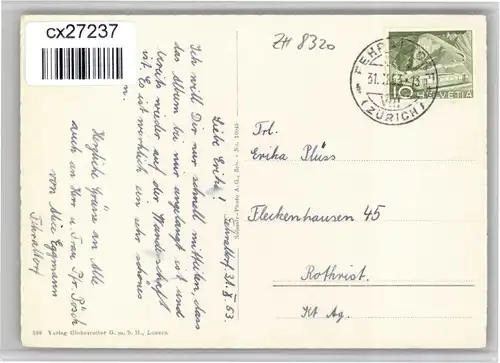 cx27237
ZH 8320
FEHRALTORF
31.X.53.-13
VIII
(ZÜRICH)
10
HELVETIA
Fehraltorf 31.X.53
Liebe Erika!
Ich will Dir nur schnell mitteilen, dass
das Album bei mir angelangt ist und
bereits wieder auf der Wanderschaft
ist. Es ist wirklich ein sehr schönes
Herzliche Grüsse an Alle
auch an Herr u. Frau Pfr. Pösch
von Alice Eggmann
Fehraltorf
Frl.
Erika Plüss
Fleckenhausen 45
Rothrist.
Kt Ag.
Verlag Globetrotter G. m. b. H., Luzern